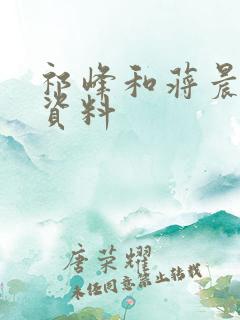 祁峰和蒋晨
资料
唐荣耀
未经同意禁止转载